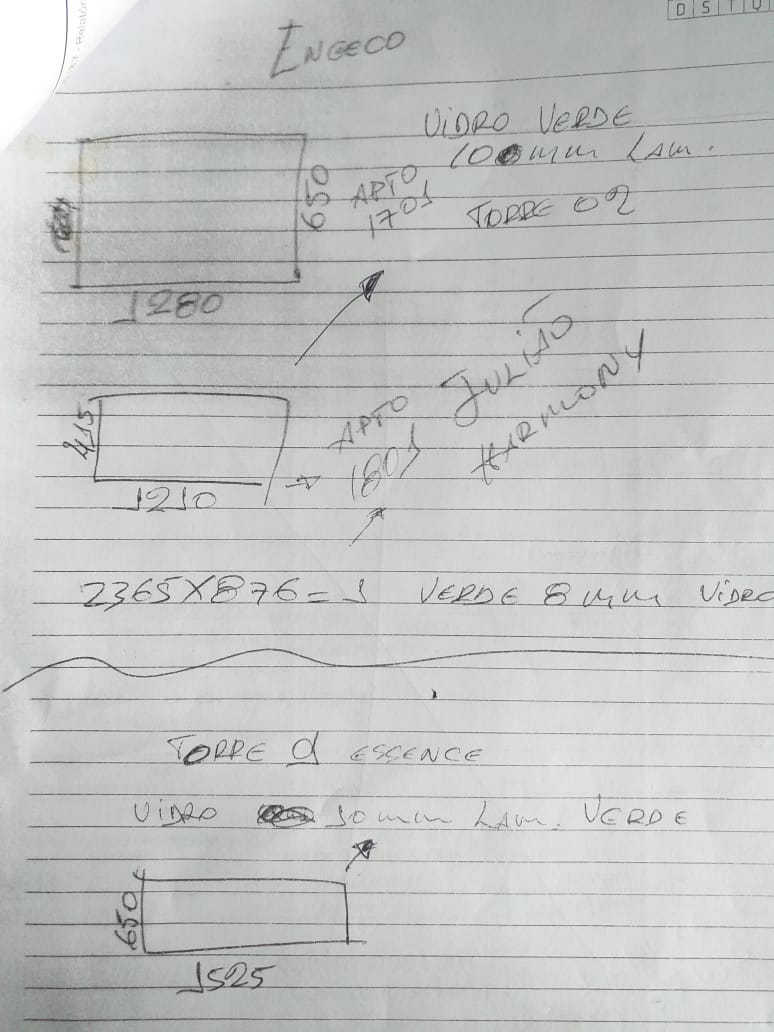 DSTQ
ENGECO
VIDRO VERDE
10 mm LAM.
650
APTO
1701
TORRE 02
1280
JULIÃO
HARMONY
415
APTO
1801
1210
2365X876=1 VERDE 8mm VIDRO
TORRE 01 ESSENCE
VIDRO 10mm LAM. VERDE
650
1525